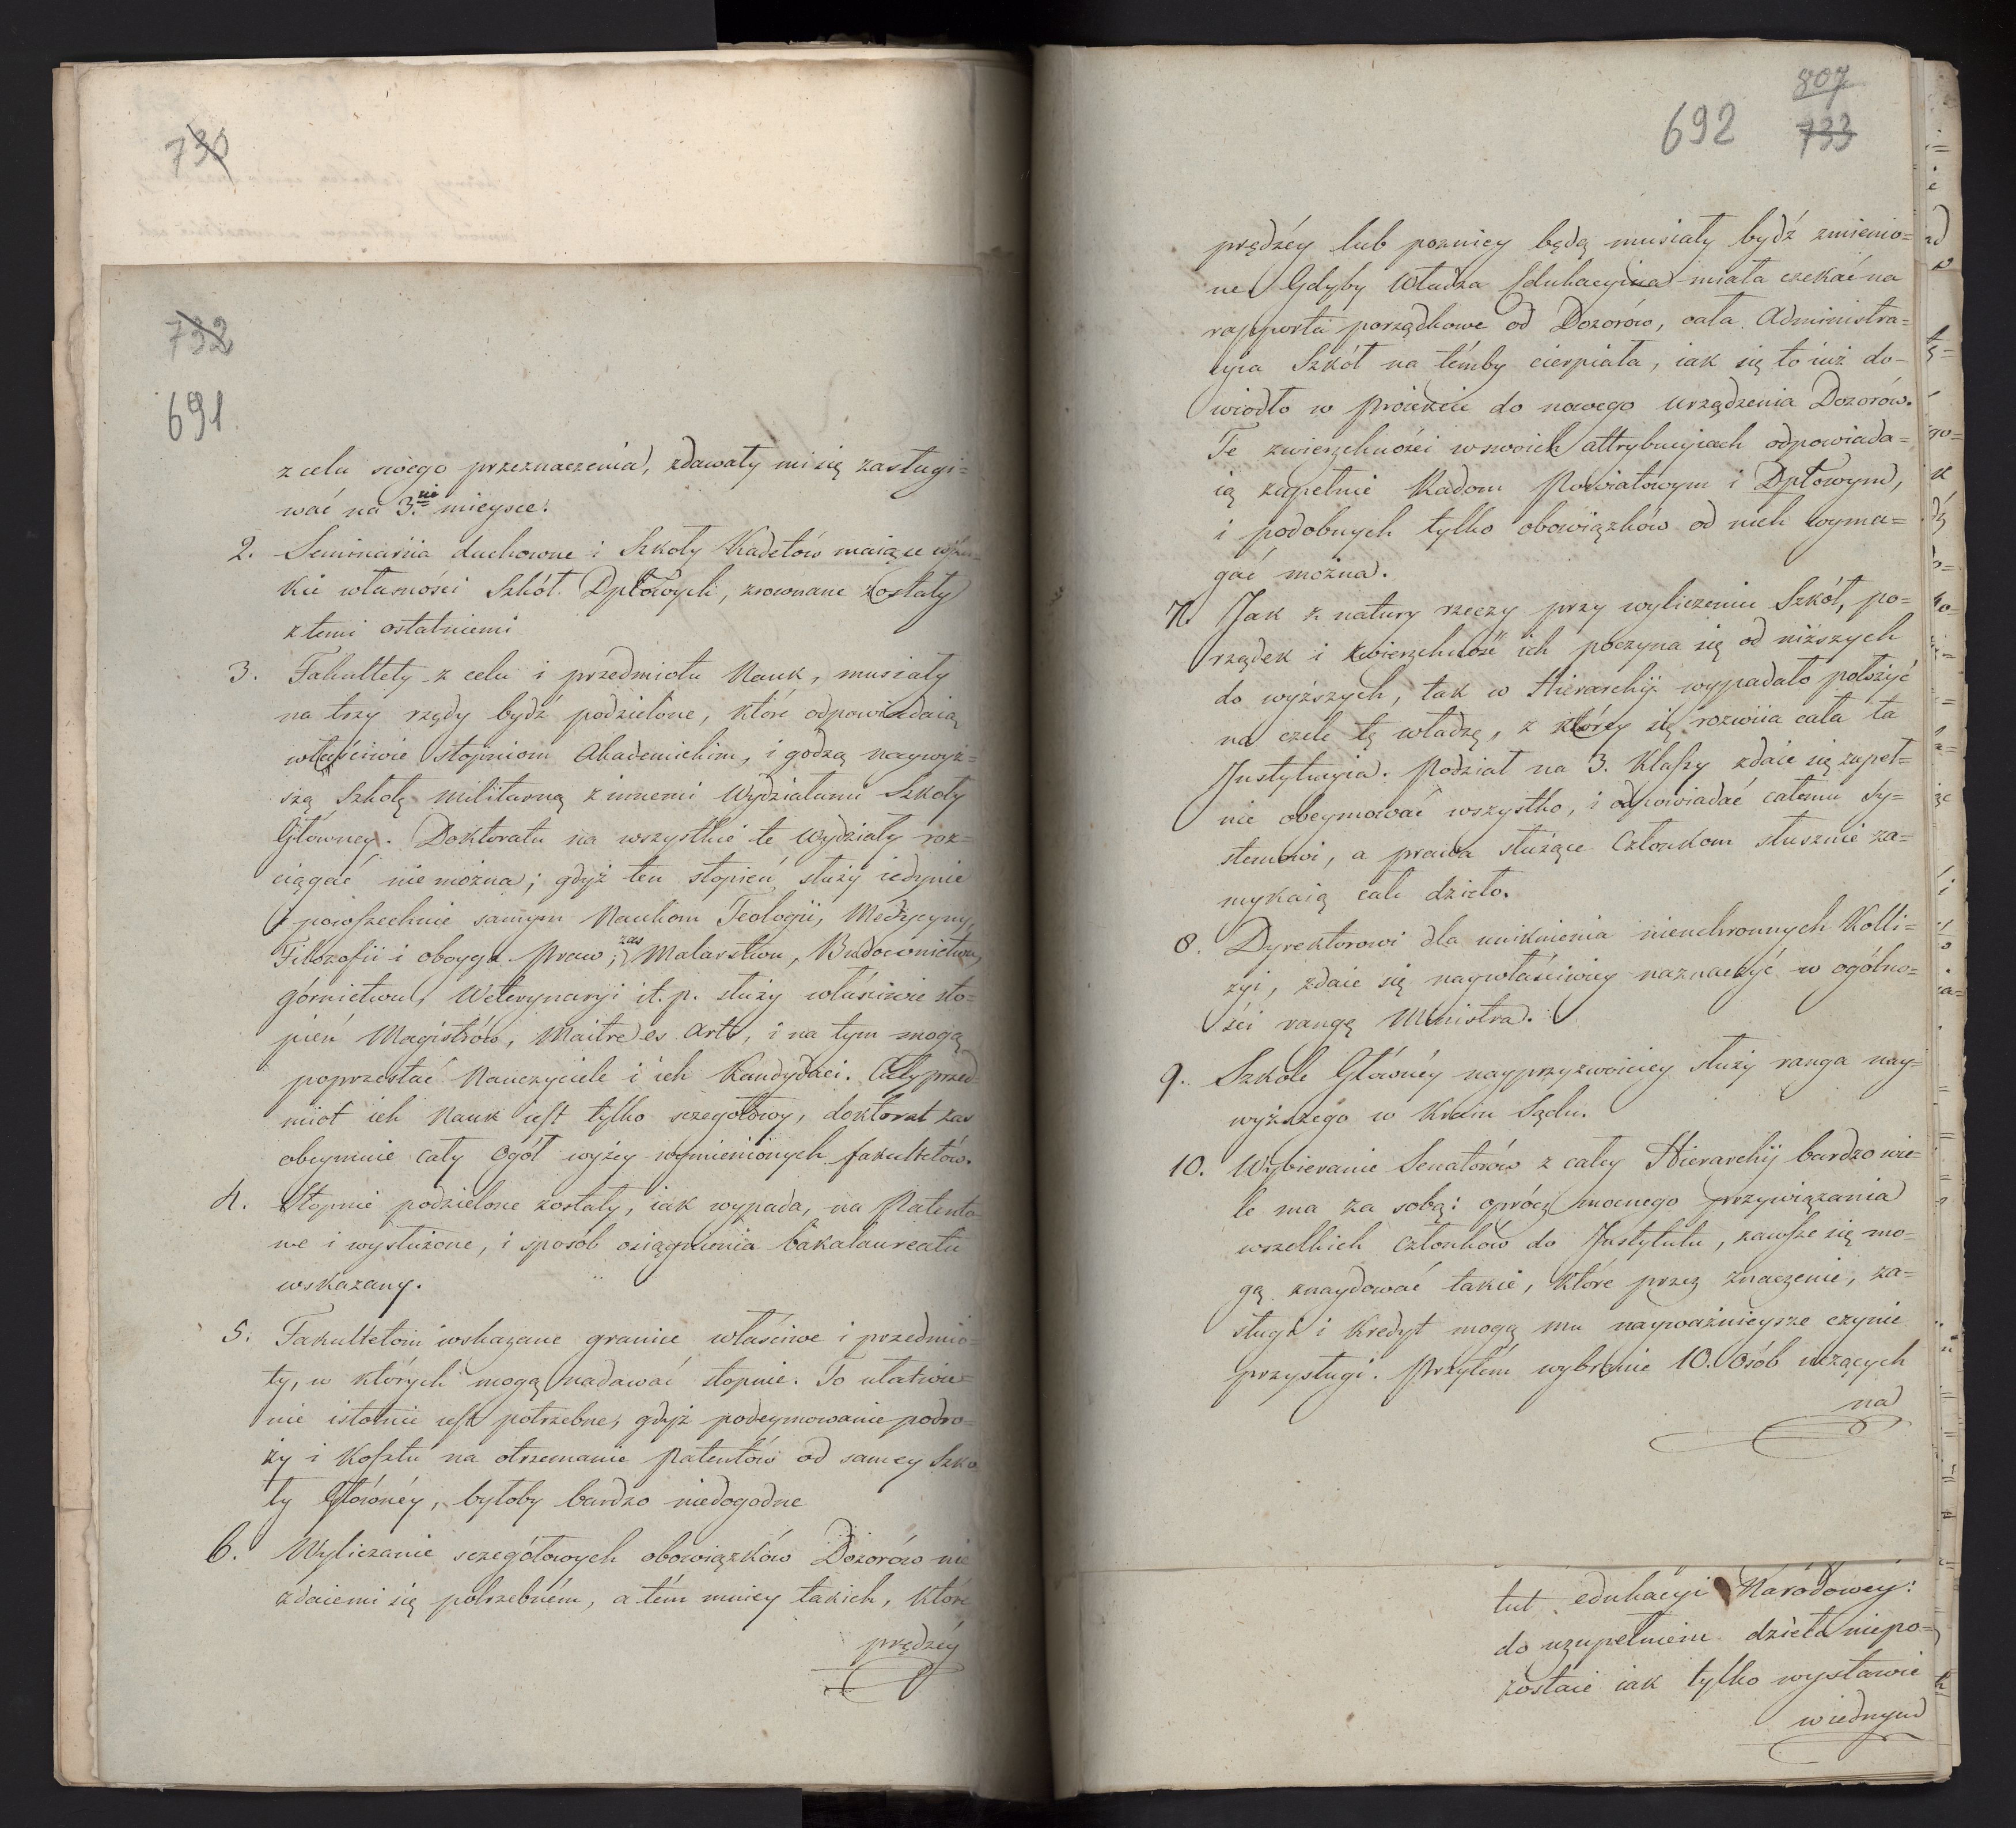 730
732
691
z celu swego przeznaczenia, zdawały mi się zasługi=
wać na 3.cie mieysce.
2. Seminariia duchowne i Szkoły Kadetów maiące
kie własności Szkół Dptowych, zrownane zostały
z temi ostatniemi
3. Fakultety z celu i przedmiotu Nauk, musiały
na trzy rzędy bydź podzielone, które odpowiadaią
właściwie stopniom Akademickim, i godzą naywyż=
szą Szkołę militarną z innemi Wydziałami Szkoły
Główney. Doktoratu na wszystkie te wydziały roz=
ciągać nie można; gdyż ten stopień służy iedynie
i powszechnie samym Naukom Teologii, Medycyny,
Filozofii i oboyga Praw; zas Malarstwu, Budownictwu,
górnictwu, Weterynaryi it. p. służy właściwie sto=
pień Magistrów, Maitre es Arts, i na tym mogą
poprzestać Nauczyciele i ich Kandydaci. Cały przed=
miot ich Nauk iest tylko szczegółowy, doktorat zas
obeymuie cały ogół wyżey wymienionych fakultetów.
4. Stopnie podzielone zostały, iak wypada, na Patento=
we i wysłużone, i sposób osiągnienia bakalaureatu
wskazany.
5. Fakultetom wskazane granice właściwe i przedmio=
ty, w których mogą nadawać stopnie. To ułatwie=
nie istotnie iest potrzebne, gdyż podeymowanie podro=
ży i kosztu na otrzemanie Patentów od samey Szko
ły Główney, byłoby bardzo niedogodne
6. Wyliczanie sczegółowych obowiązków Dozorów nie
zdaiemi się potrzebném, a tém mniey takich, które
prędzéy
807
692 733
prędzéy lub pozniey będą musiały bydź zmienio=
ne. Gdyby Władza Edukacyina miała czekać na
rapporta porządkowe od Dozorów, cała Administra=
cyia Szkół na témby cierpiała, iak się to iuż do=
wiodło w proiekcie do nowego urządzenia Dozorów.
Te zwierzchności w swoich attrybucyiach odpowiada=
ią zupełnie Radom Powiatowym i Dptowym,
i podobnych tylko obowiązków od nich wyma=
gać można.
7. Jak z natury rzeczy przy wyliczeniu Szkół, po=
rządek i zwierzchność ich poczyna się od niższych
do wyższych, tak w Hierarchij wypadało położyć
na czele tę władzę, z któréy się rozwiia cała ta
Instytucyia. Podział na 3. Klassy zdaie się zupeł=
nie obeymować wszystko, i odpowiadać całemu Sy=
stemowi, a prawa służące Członkom słusznie za=
mykaią całe dzieło.
8. Dyrektorowi dla uniknienia nieuchronnych Kolli=
zyi, zdaie się naywłaściwiey naznaczyć w ogólno=
ści rangę Ministra.
9. Szkole Główney nayprzyzwoiciey służy ranga nay=
wyższego w Kraiu Sądu.
10. Wybieranie Senatorów z całey Hierarchij bardzo wie=
le ma za sobą: oprócz mocnego przywiązania
wszelkich członków do Instytutu, zawsze się mo=
gą znaydować takie, które przez znaczenie, za=
sługi i kredyt mogą mu nayważnieysze czynić
przysługi. Przytém wybranie 10. Osób uczących
na
tut edukacyi Narodowey:
do uzupełnieniu dzieła niepo=
zostaie iak tylko wystawie
wiednym